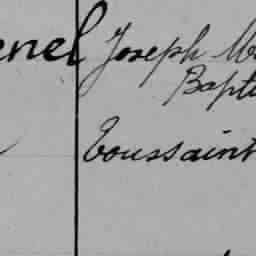 enel Joseph
Bapt
Toussaint